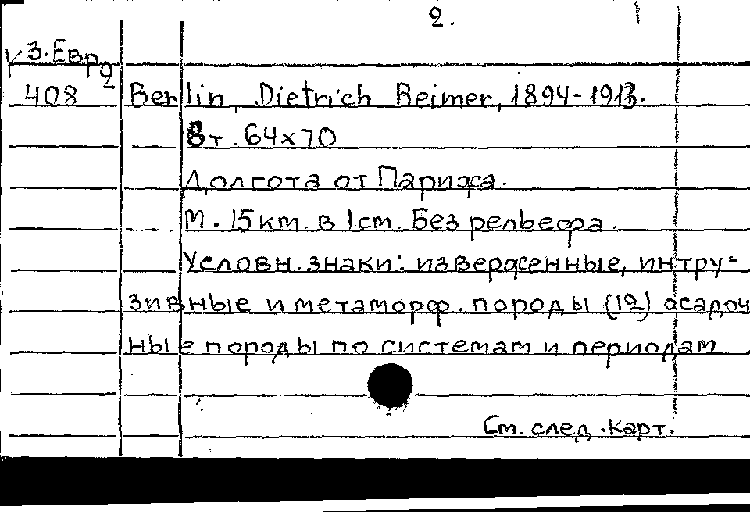 2.
З.Евр
2
408 Berlin, Dietrich Reimer, 1894-1913.
8т. 64х70
Долгота от Парижа.
М. 15км. в 1см. Без рельефа.
Условн. знаки: изверженные, интру-
зивные и метаморф. породы (12) осадоч
ные породы по системам и периодам
См. след. карт.